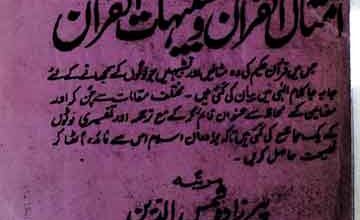 امثال القرآن و تشبیہات القرآن
جس میں قرآن حکیم کی وہ مثالیں اور تشبیہیں جو لوگوں کے سمجھانے کے لئے
جا بجا کلام الٰہی میں بیان کی گئی ہیں۔ مختلف مقامات سے چن کر اور
مضامین کے لحاظ سے عنوان قائم کر کے مع ترجمہ اور تفسیری نوٹوں
کے یک جا جمع کی گئی ہیں تاکہ برادران اسلام اس سے فائدہ اٹھا کر
نصیحت حاصل کریں۔
مرتبہ
مرزا شمس الدین